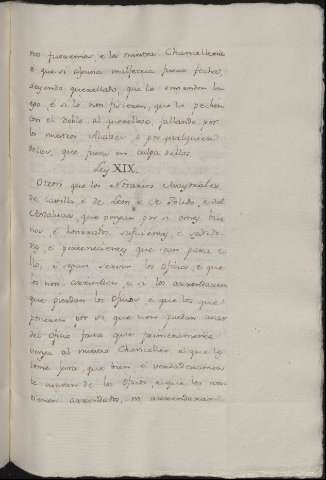 nos fueremos, e la nuestra Chancelleria
e que si alguna malfetria fuere fecha,
seyendo querellado, que lo emienden lue
go, e si lo non ficieren, que lo pechen
con el doblo al querelloso, fallando por
los nuestros Alcaldes o por qualquiera
dellos, que fueron en culpa dellos.
Ley XIX.
Otrosi que los Notarios mayorales
de Castilla, e de Leon, e de Toledo, e del
Andalucia, que pongan por si omes bue
nos, e honrados, suficientes, e sabido
res, e pertenecientes que son para e
llo, e sepan servir los oficios e que
los non arrienden, e si los arrendaren
que pierdan los oficios e que los que
pusieren por si que non puedan usar
del oficio fasta que primeramente
venga al nuestro Chanceller e que le
tome jura que bien e verdaderamente
le usaran de los oficios, e que los non
tienen arrendados, ni arrendaran